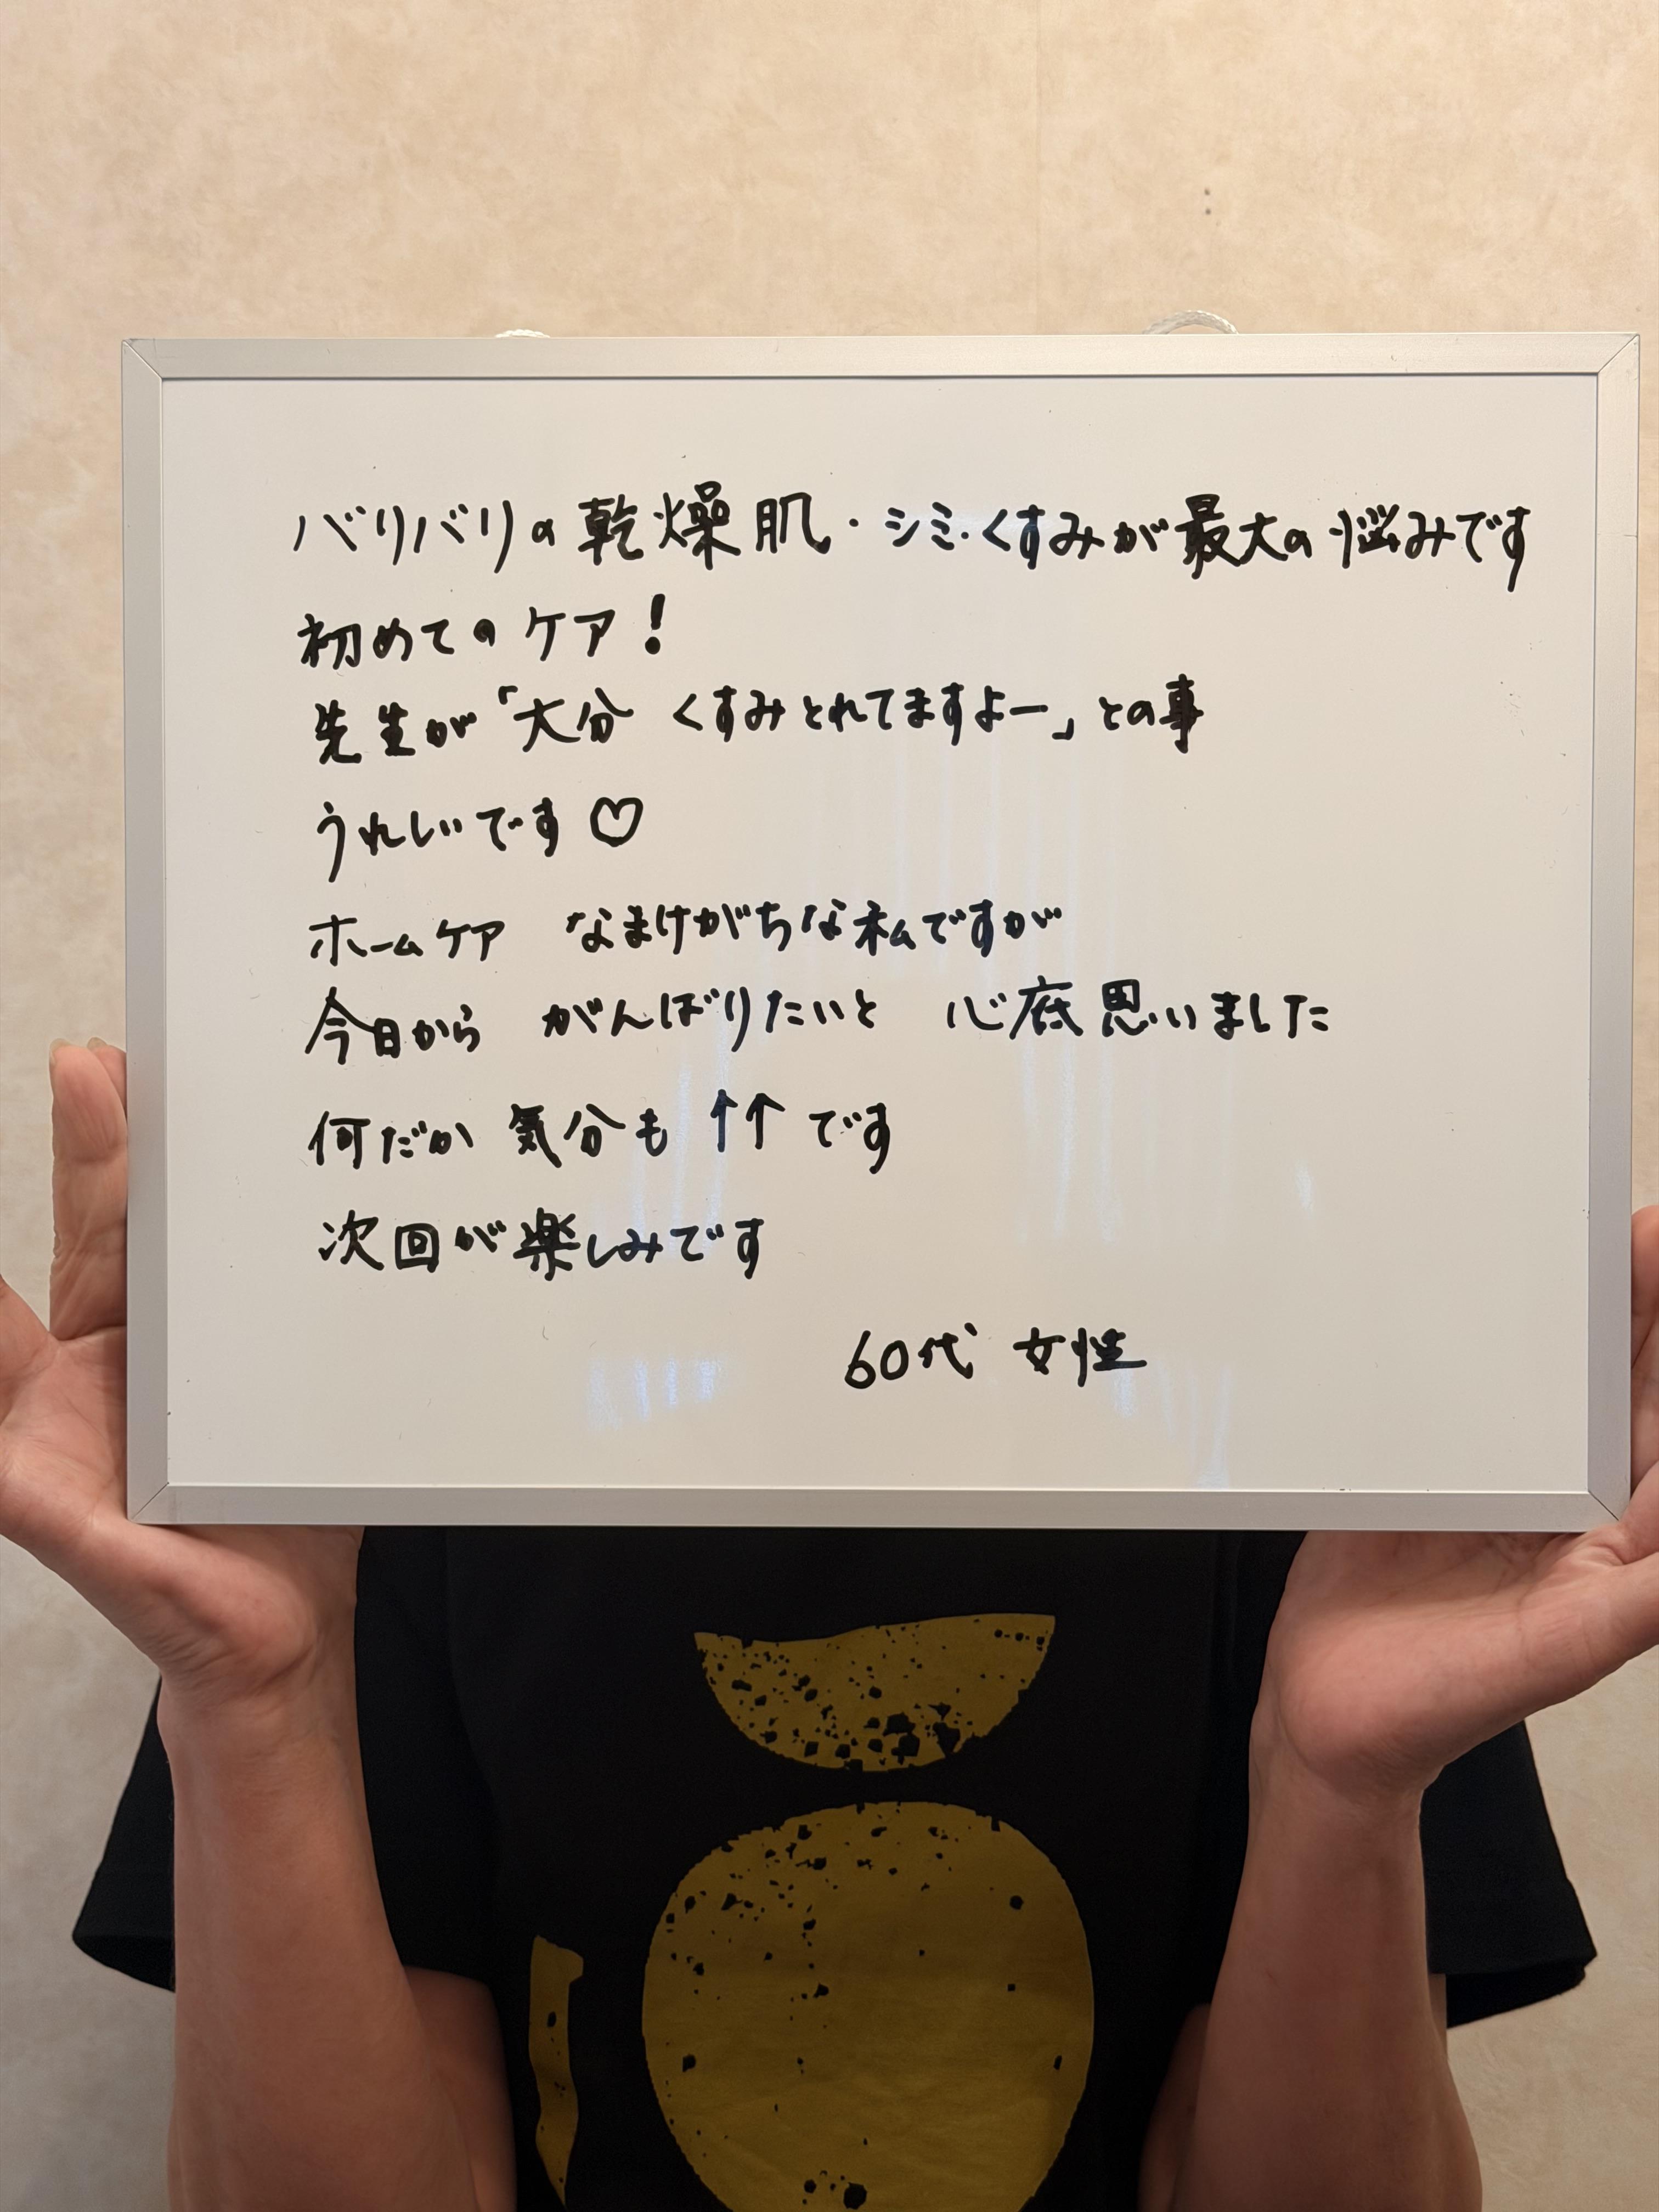 バリバリの乾燥肌・シミ・くすみが最大の悩みです
初めてのケア！
先生が「大分 くすみとれてますよー」との事
うれしいです♡
ホームケア なまけがちな私ですが
今日から がんばりたいと 心底思いました
何だか 気分も ↑↑ です
次回が楽しみです
60代 女性